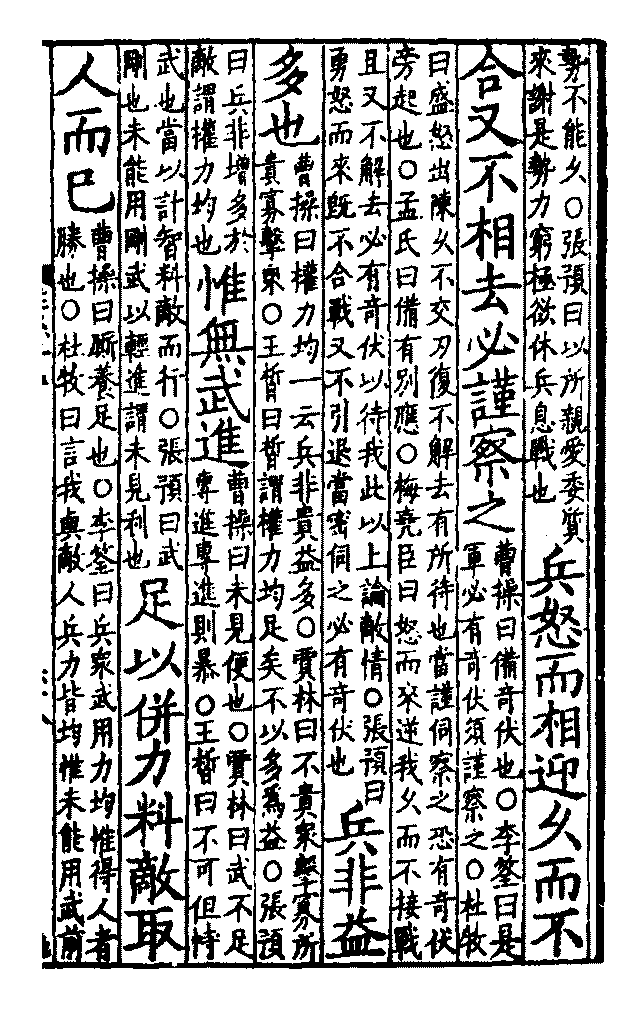 勢不能久○張預曰以所親愛委質
來謝是勢力窮極欲休兵息戰也
兵怒而相迎久而不
合又不相去必謹察之
曹操曰備奇伏也○李筌曰是
軍必有奇伏須謹察之○杜牧
曰盛怒出陳久不交刃復不解去有所待也當謹伺察之恐有奇伏
旁起也○孟氏曰備有別應○梅堯臣曰怒而來逆我久而不接戰
且又不解去必有奇伏以待我此以上論敵情○張預曰
勇怒而來旣不合戰又不引退當密伺之必有奇伏也
兵非益
多也
曹操曰權力均一云兵非貴益多○賈林曰不貴衆擊寡所
貴寡擊衆○王晳曰晳謂權力均足矣不以多爲益○張預
曰兵非增多於
敵謂權力均也
惟無武進
曹操曰未見便也○賈林曰武不足
專進專進則暴○王晳曰不可但恃
武也當以計智料敵而行○張預曰武
剛也未能用剛武以輕進謂未見利也
足以併力料敵取
人而已
曹操曰厮養足也○李筌曰兵衆武用力均惟得人者
勝也○杜牧曰言我與敵人兵力皆均惟未能用武前